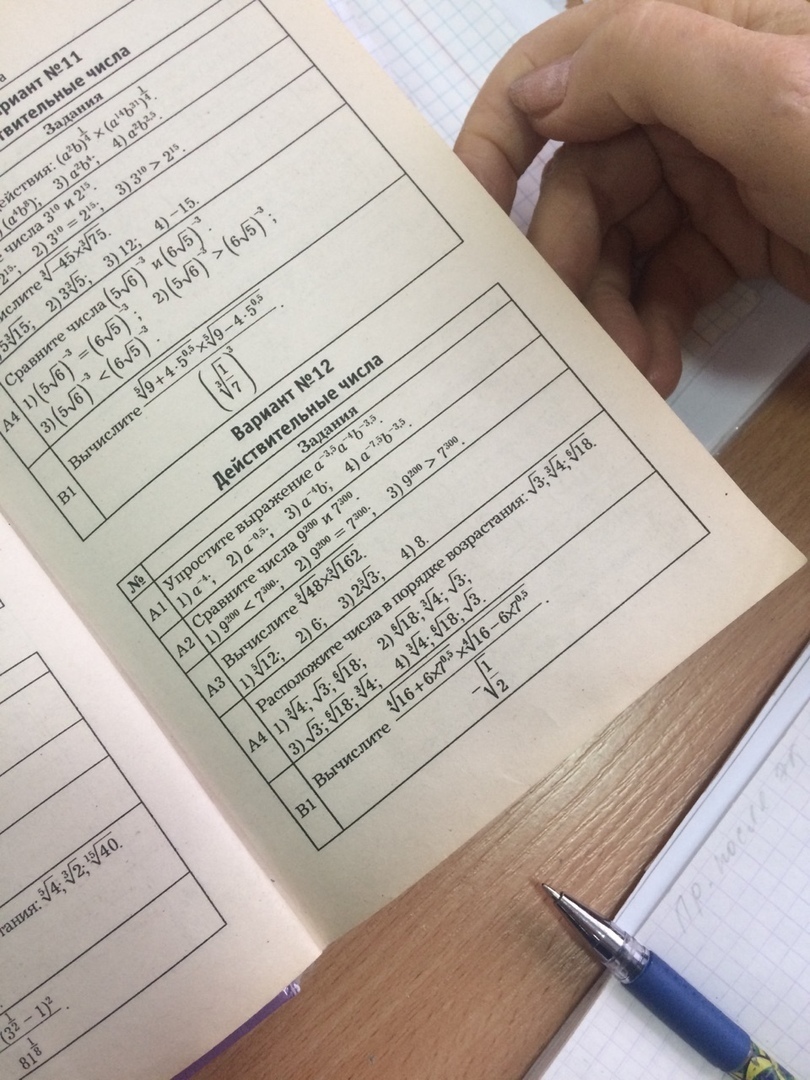 Вариант №11
Действительные числа
Задания
действия: (a²b)^¼ × (a¹⁴b³¹)^¼.
(a⁴b⁸); 3) a²b⁴; 4) a²b^3,5.
числа 3¹⁰ и 2¹⁵.
2¹⁵; 2) 3¹⁰ = 2¹⁵; 3) 3¹⁰ > 2¹⁵.
∛-45×∛75.
∛15; 2) 3∛5; 3) 12; 4) -15.
A4 Сравните числа (5√6)⁻³ и (6√5)⁻³.
1) (5√6)⁻³ = (6√5)⁻³; 2) (5√6)⁻³ > (6√5)⁻³;
3) (5√6)⁻³ < (6√5)⁻³.
B1 Вычислите (⁵√9+4·5^0,5 × ⁵√9-4·5^0,5) / (∛(1/7))³.
Вариант №12
Действительные числа
№ Задания
A1 Упростите выражение a^-3,5 a⁻⁴b^-3,5.
1) a⁻⁴; 2) a^-0,5; 3) a⁻⁴b; 4) a^-7,5 b^-3,5.
A2 Сравните числа 9²⁰⁰ и 7³⁰⁰.
1) 9²⁰⁰ < 7³⁰⁰; 2) 9²⁰⁰ = 7³⁰⁰; 3) 9²⁰⁰ > 7³⁰⁰.
A3 Вычислите ⁵√48×⁵√162.
1) ⁵√12; 2) 6; 3) 2⁵√3; 4) 8.
A4 Расположите числа в порядке возрастания: √3; ∛4; ⁶√18.
1) ∛4; √3; ⁶√18; 2) ⁶√18; ∛4; √3;
3) √3; ⁶√18; ∛4; 4) ∛4; ⁶√18; √3.
B1 Вычислите (⁴√16+6×7^0,5 × ⁴√16-6×7^0,5) / (-√(1/2)).
⁵√4; ∛2; ¹⁵√40.
(3^½ - 1)²
81^⅛
Пр. после